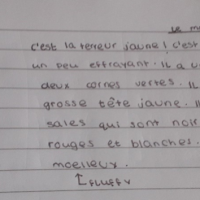 le m
c'est la terreur jaune! c'est
un peu effrayant. Il a u
deux cornes vertes. Il
grosse tête jaune. Il
sales qui sont noi
rouges et blanches.
moelleux.
↳fluffy